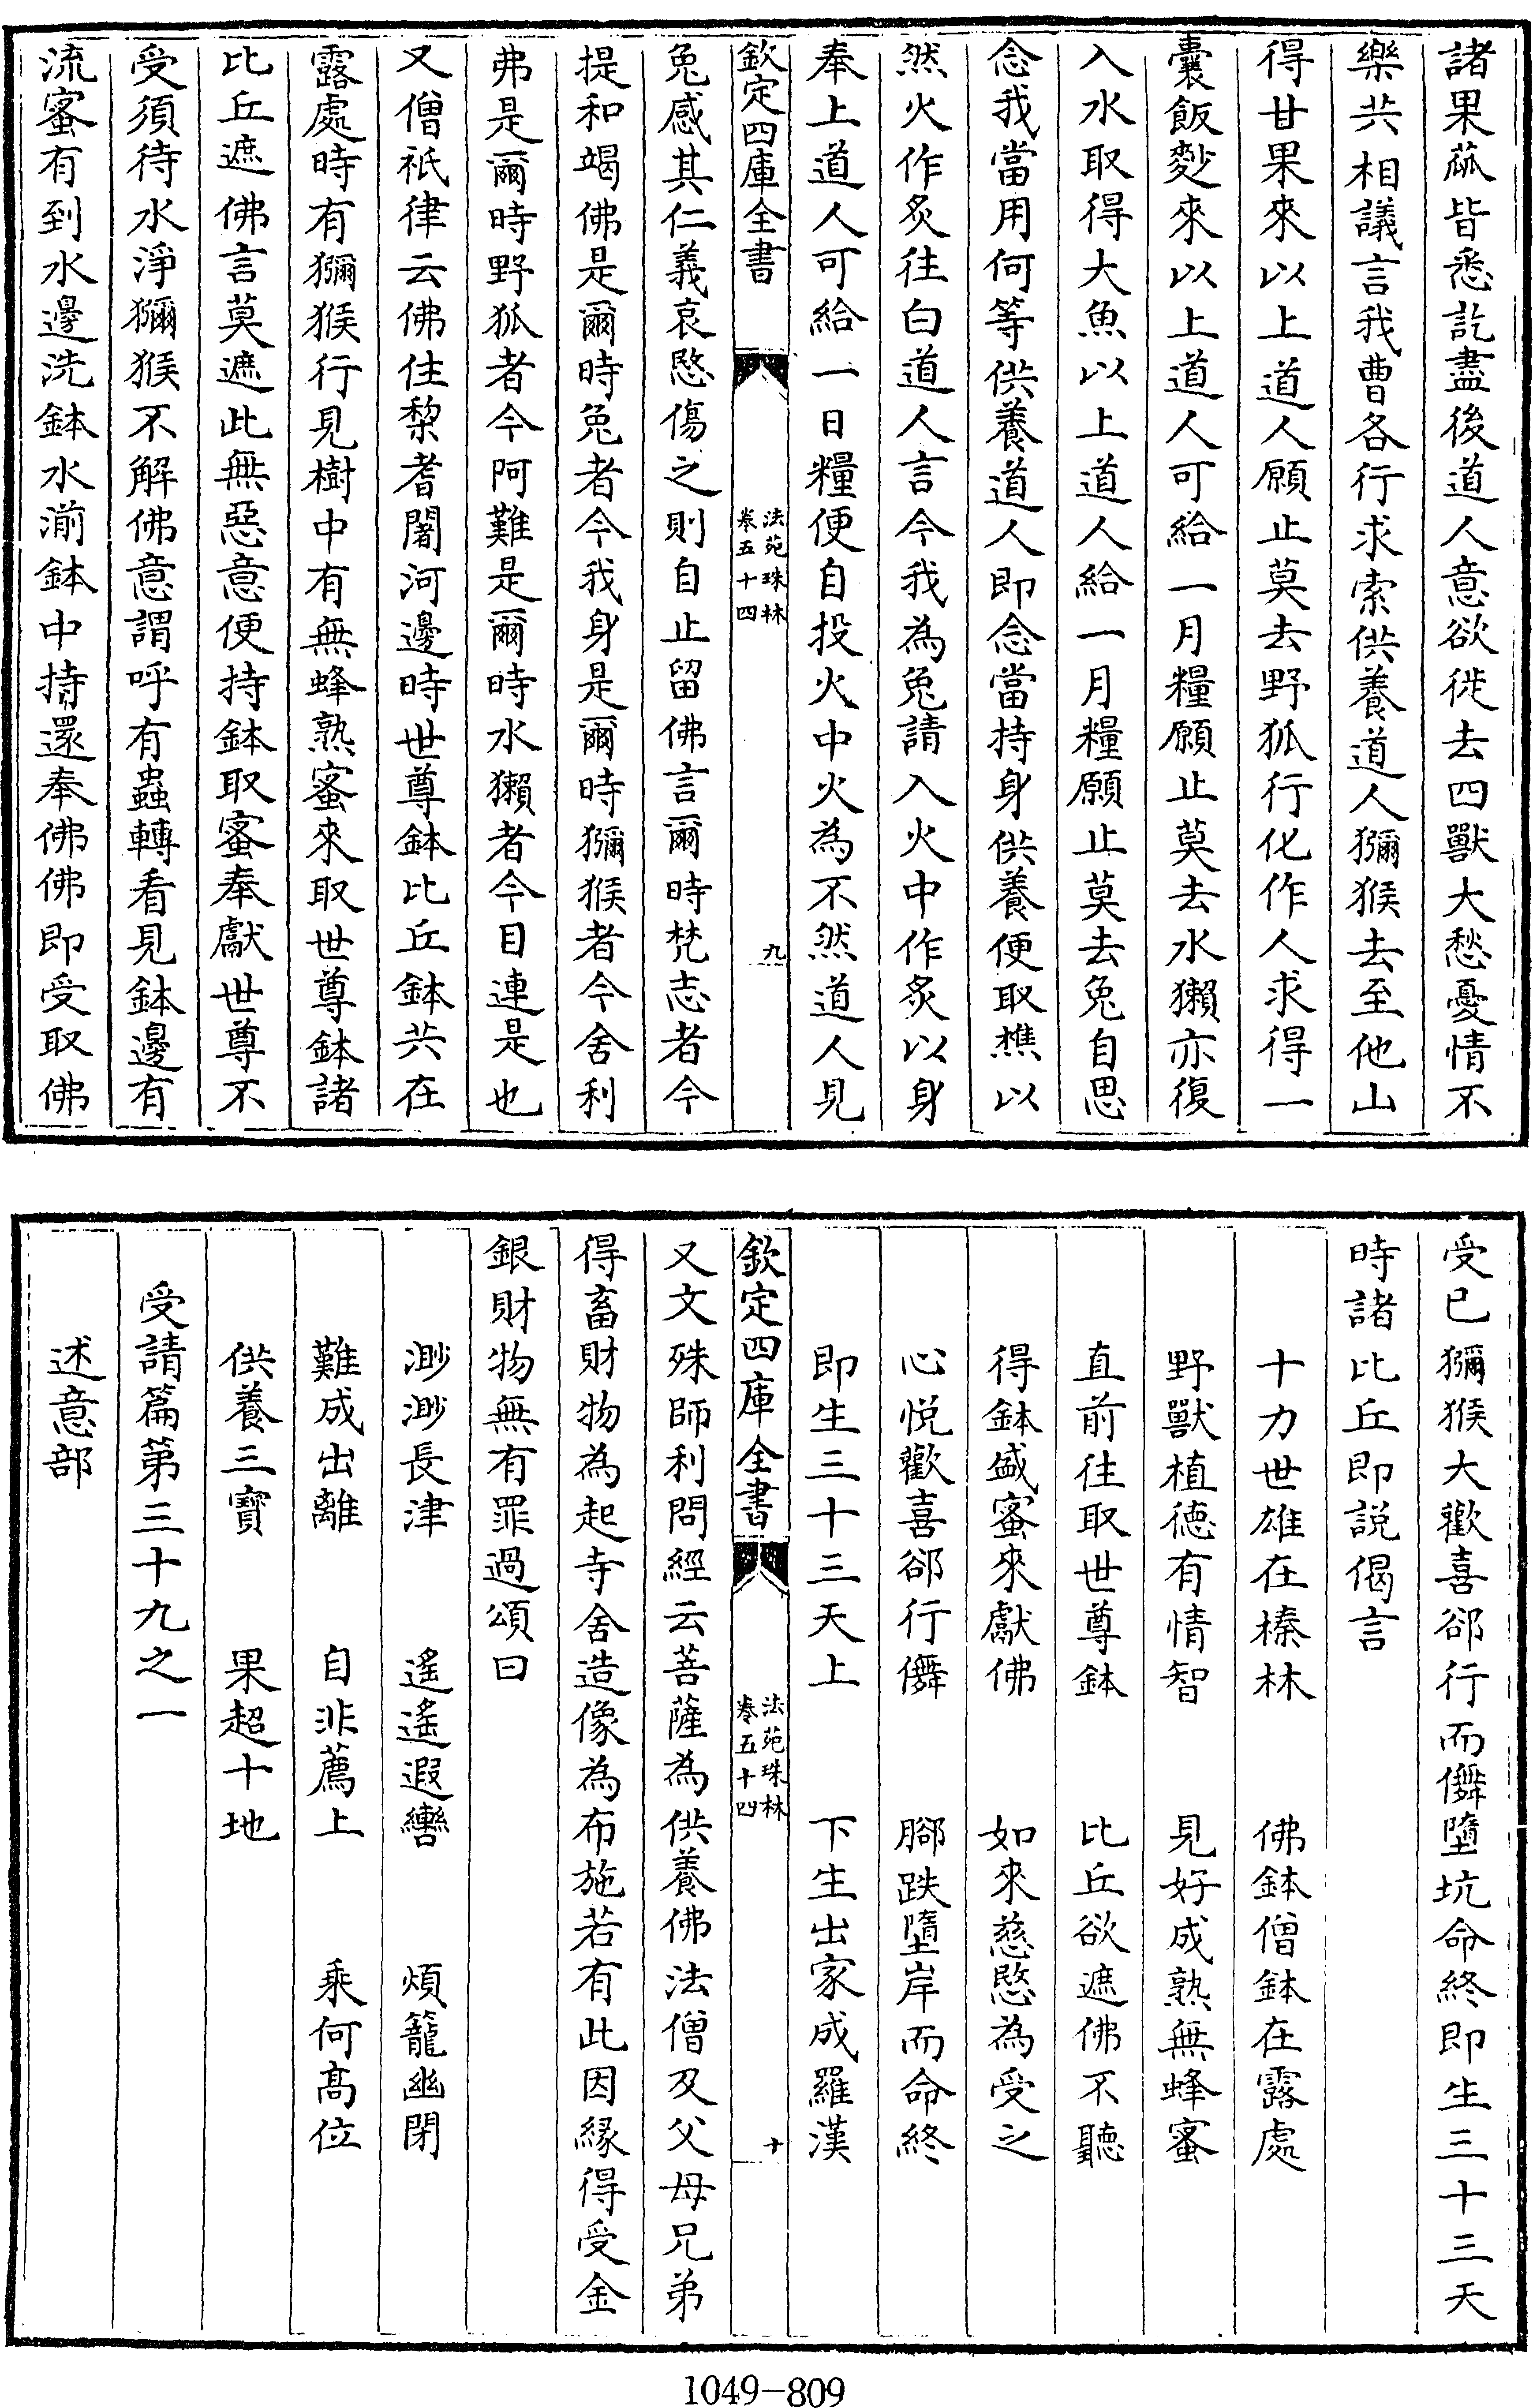 諸果蓏皆悉訖盡後道人意欲徙去四獸大愁憂情不
樂共相議言我曹各行求索供養道人獼猴去至他山
得甘果來以上道人願止莫去野狐行化作人求得一
囊飯麨來以上道人可給一月糧願止莫去水獺亦復
入水取得大魚以上道人給一月糧願止莫去兔自思
念我當用何等供養道人即念當持身供養便取樵以
然火作炙往白道人言今我為兔請入火中作炙以身
奉上道人可給一日糧便自投火中火為不然道人見
欽定四庫全書
法苑珠林
卷五十四
九
兔感其仁義哀愍傷之則自止留佛言爾時梵志者今
提和竭佛是爾時兔者今我身是爾時獼猴者今舍利
弗是爾時野狐者今阿難是爾時水獺者今目連是也
又僧祇律云佛住棃耆闍河邊時世尊鉢比丘鉢共在
露處時有獼猴行見樹中有無蜂熟蜜來取世尊鉢諸
比丘遮佛言莫遮此無惡意便持鉢取蜜奉獻世尊不
受須待水淨獼猴不解佛意謂呼有蟲轉看見鉢邊有
流蜜有到水邊洗鉢水湔鉢中持還奉佛佛即受取佛
受已獼猴大歡喜郤行而儛墮坑命終即生三十三天
時諸比丘即説偈言
十力世雄在榛林 佛鉢僧鉢在露處
野獸植徳有情智 見好成熟無蜂蜜
直前往取世尊鉢 比丘欲遮佛不聽
得鉢盛蜜來獻佛 如來慈愍為受之
心悦歡喜郤行儛 腳跌墮岸而命終
即生三十三天上 下生出家成羅漢
欽定四庫全書
法苑珠林
卷五十四
十
又文殊師利問經云菩薩為供養佛法僧及父母兄弟
得畜財物為起寺舍造像為布施若有此因縁得受金
銀財物無有罪過頌曰
渺渺長津 遙遙遐轡 煩籠幽閉
難成出離 自非薦上 乘何髙位
供養三寶 果超十地
受請篇第三十九之一
述意部
1049-809